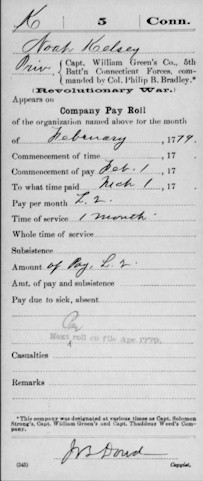 K | 5 | Conn.
Noah Kelsey
Priv, { Capt. William Green's Co., 5th
Batt'n Connecticut Forces, com-
manded by Col. Philip B. Bradley.*
(Revolutionary War.)
Appears on
Company Pay Roll
of the organization named above for the month
of February, 1779.
Commencement of time, 17
Commencement of pay Feb. 1, 17
To what time paid Mch 1, 17
Pay per month £. 2.
Time of service 1 month.
Whole time of service
Subsistence
Amount of Pay, £. 2.
Amt. of pay and subsistence
Pay due to sick, absent
Co
Next roll on file Apr. 1779.
Casualties
Remarks
*This company was designated at various times as Capt. Solomon
Strong's, Capt. William Green's and Capt. Thaddeus Weed's Com-
pany.
Dowd
(545) Copyist.